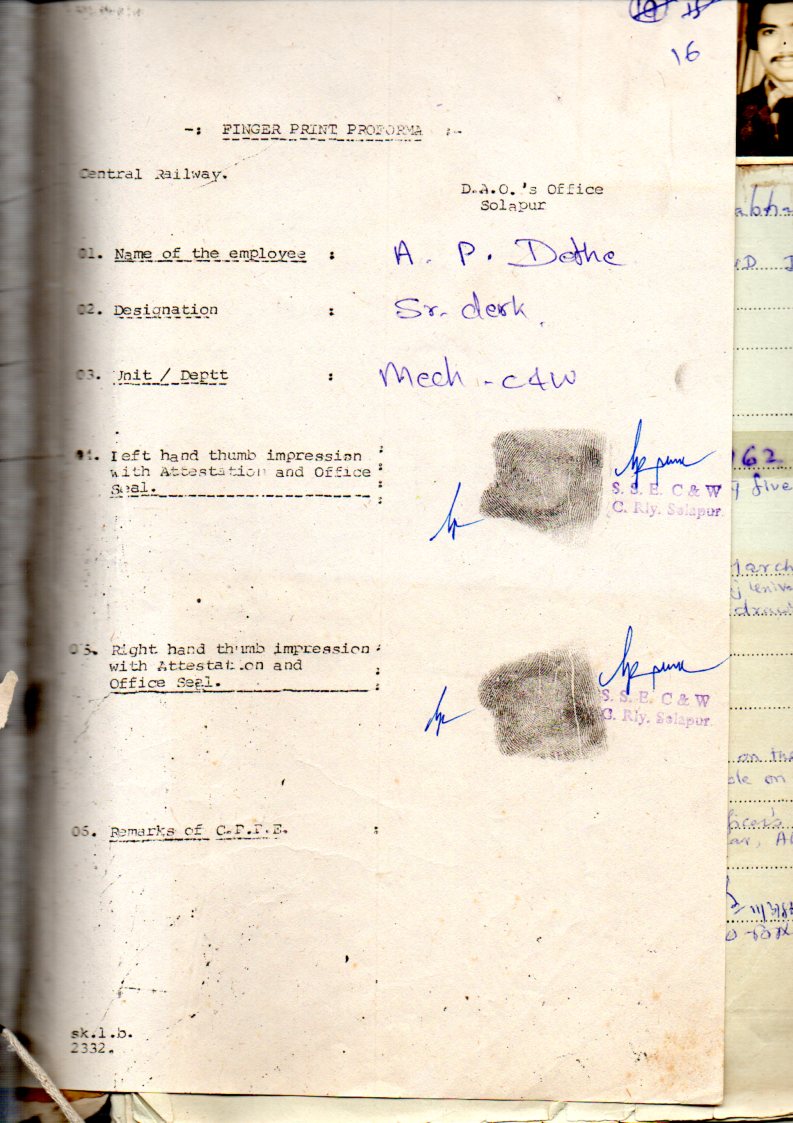 16
-: FINGER PRINT PROFORMA :-
Central Railway.
D.A.O.'s Office
Solapur
01. Name of the employee : A. P. Dethe
02. Designation : Sr. clerk.
03. Unit / Deptt : Mech - C&W
04. Left hand thumb impression :
with Attestation and Office :
Seal. :
S. S. E. C & W
C. Rly. Solapur.
05. Right hand thumb impression :
with Attestation and :
Office Seal. :
S. S. E. C & W
C. Rly. Solapur.
06. Remarks of C.F.P.E. :
sk.l.b.
2332.
162
five
March
on the